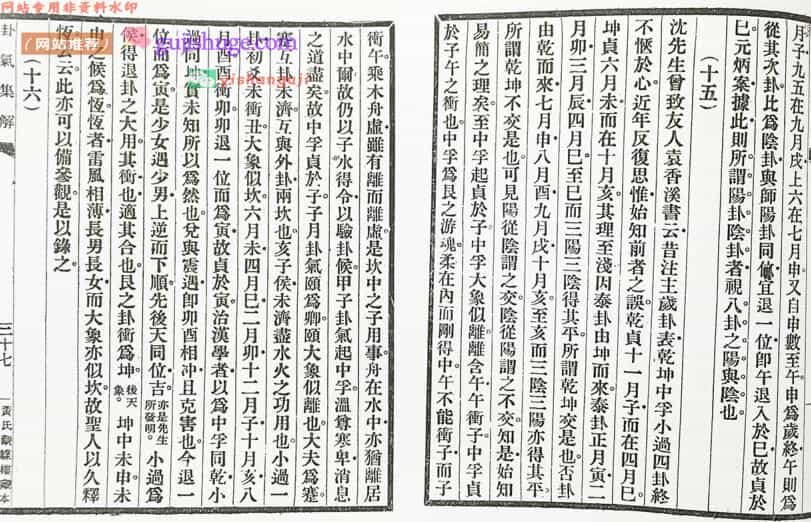 月子九五在九月戌上六在七月申又自申數至午申爲歲終午則爲
從其次卦比爲陰卦與師陽卦同位宜退一位卽午退入於巳故貞於
巳元炳案據此則所謂陽卦陰卦者視八卦之陽與陰也
（十五）
沈先生曾致友人袁香溪書云昔注主歲卦表乾坤中孚小過四卦終
不愜於心近年反復思惟始知前者之誤乾貞十一月子而在四月巳
坤貞六月未而在十月亥其理至淺因泰卦由坤而來泰卦正月寅二
月卯三月辰四月巳至巳而三陽三陰得其平所謂乾坤交是也否卦
由乾而來七月申八月酉九月戌十月亥至亥而三陰三陽亦得其平
所謂乾坤不交是也可見陽從陰謂之交陰從陽謂之不交知是始知
易簡之理矣至中孚起貞於子中孚大象似離離含午午衝子中孚貞
於子午之衝也中孚爲艮之游魂柔在內而剛得中午不能衝子而子
衝午乘木舟虛雖有離而離虛是坎中之子用事舟在水中亦猶離居
水中爾故仍以子水得令以驗卦候甲子卦氣起中孚溫尊寒卑消息
之道盡矣故中孚貞於子子月卦氣頤爲卿頤大象似離也大夫爲蹇
蹇互卦未濟互與外卦兩坎也亥子侯未濟盡水火之功用也小過一
卦初爻未衝丑大象似坎六月未四月巳二月卯十二月子十月亥八
月酉酉衝卯卯退一位而爲寅故貞於寅治漢學者以爲中孚同乾小
過同坤實未知所以爲然也兌與震遇卽卯酉相冲且克害也今退一
位而爲寅是少女遇少男上逆而下順先後天同位吉亦是先生所發明小過爲
侯得退卦之大用其衝也適其合也艮之卦衝爲坤後天象坤中未申未
申之候爲恆恆者雷風相薄長男長女而大象亦似坎故聖人以久釋
恆云云此亦可以備參觀是以錄之
（十六）
卦氣集解
三十七
黃氏觀蝶樓藏本
网站专用非资料水印
（网站推荐）
guushuge.com
yishanguji